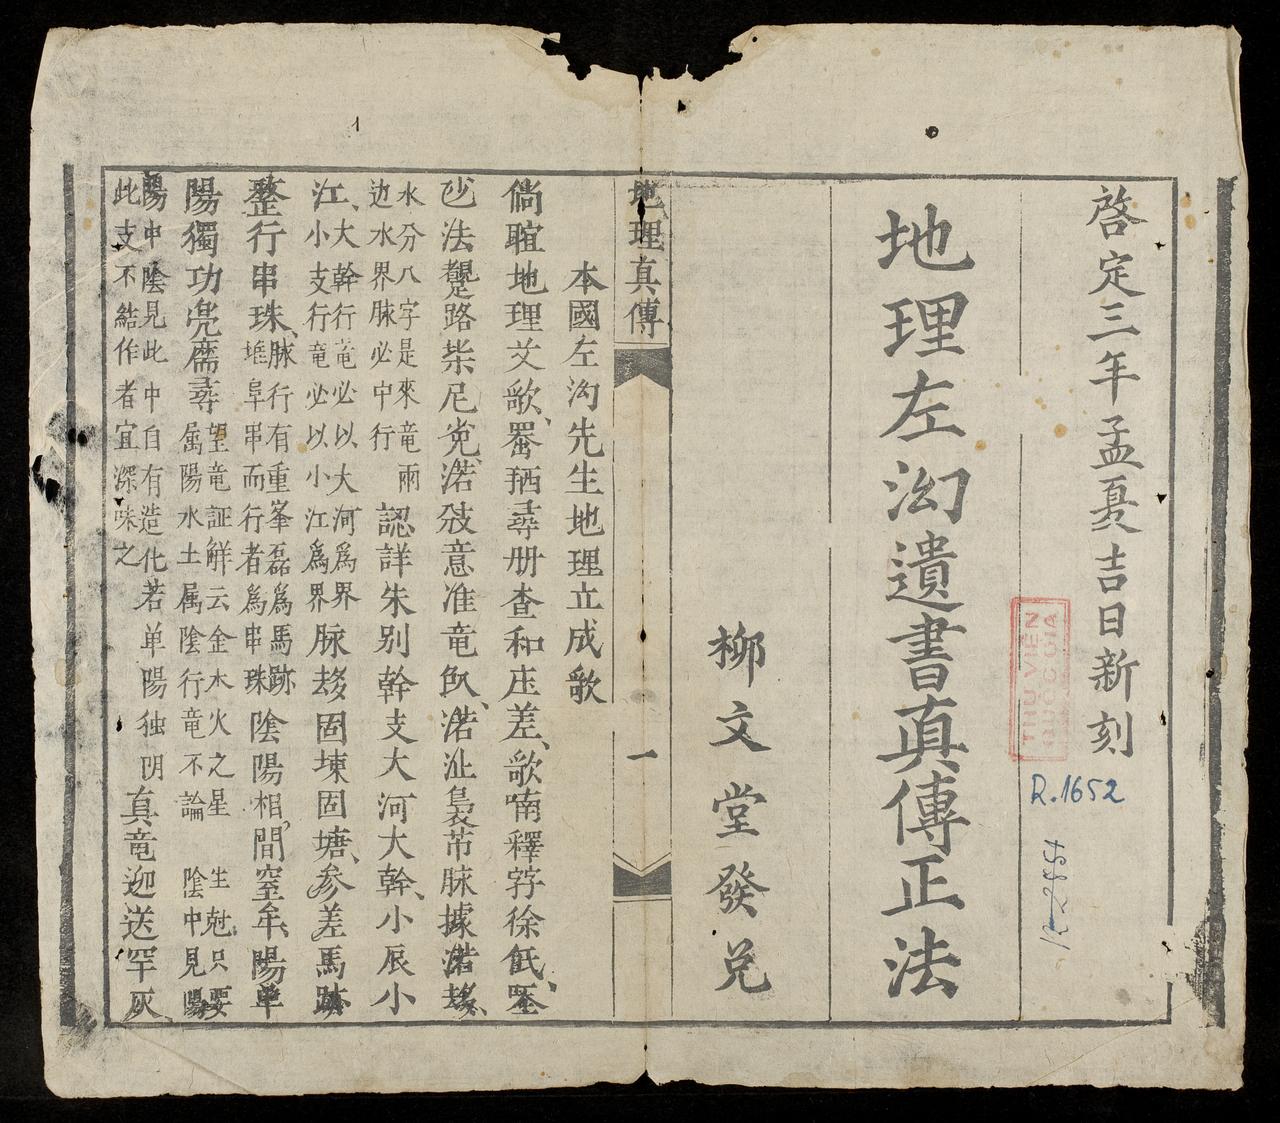 啓定三年孟夏吉日新刻
地理左㳉遺書真傳正法
柳文堂發兌
THƯ VIỆN
QUỐC GIA
R.1652
地理真傳
一
本國左㳉先生地理立成歌
倘暄地理文歌、畧栖尋册查和庄差、歌喃釋字徐
法路柴尼免、渃意准竜、渃沚裊芇脉據渃
水分八字是來竜兩
边水界脉必中行
認詳朱別幹支大河大幹、小辰小
江、
大幹行竜必以大河爲界
小支行竜必以小江爲界
脉固堜固塘、参差馬跡
整行串珠、
脉行有重峯磊爲馬跡
堆阜串而行者爲串珠
陰陽相間窒牟、陽单
陽獨功堯齋尋
望竜証解云金木火之星
属陽水土属陰行竜不論
生尅只要
陰中見陽
陽中陰見此中自有造化若单陽独阴
此支不結作者宜深味之
真竜迎送罕灰